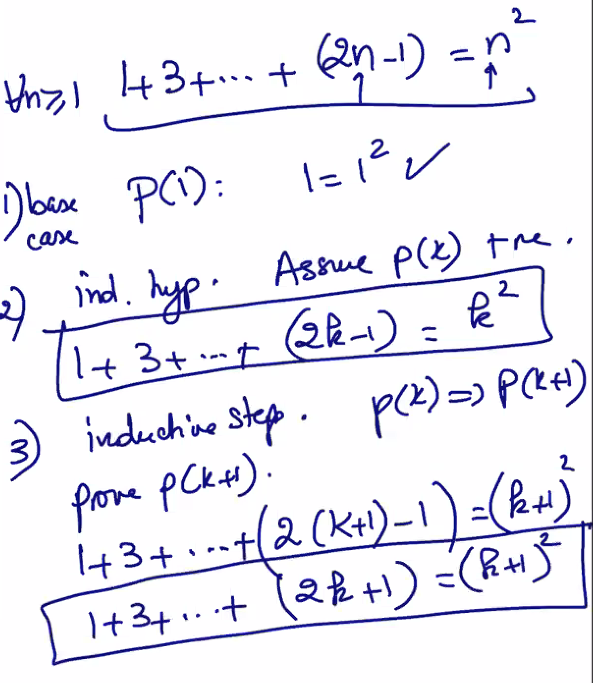 ∀n≥1 1+3+...+ (2n-1) = n²
1) base case P(1): 1=1² ✓
2) ind. hyp. Assume P(k) true.
1+3+...+ (2k-1) = k²
3) inductive step. P(k)⇒P(k+1)
prove P(k+1).
1+3+...+(2(k+1)-1)=(k+1)²
1+3+...+ (2k+1)=(k+1)²